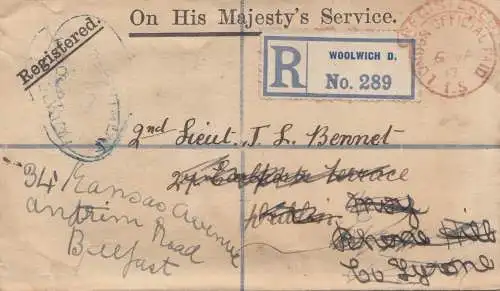 On His Majesty's Service.
Registered.
REGISTERED
LONDON OFFICIAL PAID
I.S
R
WOOLWICH D.
No. 289
2nd Lieut. J. L. Bennet
Terrace
Dublin
34 Kansas Avenue
Antrim Road
Belfast
Moy
Co Tyrone